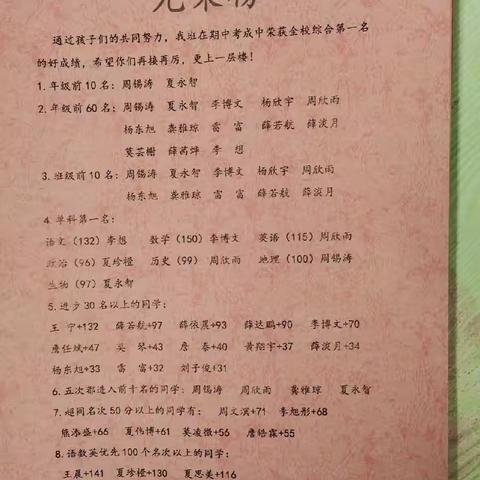 光荣榜
通过孩子们的共同努力，我班在期中考成中荣获全校综合第一名
的好成绩，希望你们再接再厉，更上一层楼！
1.年级前10名：周锡涛 夏永智
2.年级前60名：周锡涛 夏永智 李博文 杨欣宇 周欣雨
杨东旭 龚雅琼 雷富 薛若航 薛淡月
莫芸榭 薛茜烨 李想
3.班级前10名：周锡涛 夏永智 李博文 杨欣宇 周欣雨
杨东旭 龚雅琼 雷富 薛若航 薛淡月
4.单科第一名：
语文（132）李想 数学（150）李博文 英语（115）周欣雨
政治（96）夏珍橙 历史（99） 周欣雨 地理（100）周锡涛
生物（97）夏永智
5.进步30名以上的同学：
王宁+132 薛若航+97 薛依晨+93 薛达鹏+90 李博文+70
詹任斌+47 吴琴+43 詹泰+40 黄翔宇+37 薛淡月+34
杨东旭+33 雷富+32 刘子俊+31
6.五次都进入前十名的同学：周锡涛 周欣雨 龚雅琼 夏永智
7.超同名次50分以上的同学有： 周文淇+71 李旭彤+68
熊添盛+66 夏伟博+61 莫凌微+56 詹皓霖+55
8.语数英优先100个名次以上的同学：
王晨+141 夏珍橙+130 夏思美+116